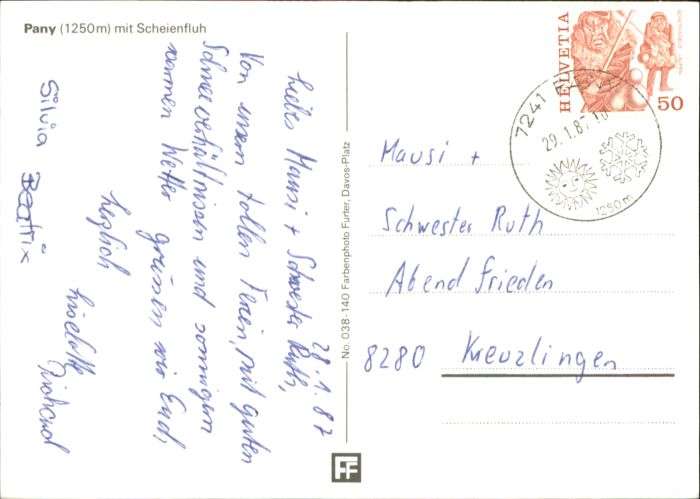 Pany (1250m) mit Scheienfluh
28.1.87
Liebes Mausi + Schwester Ruth,
Von unsern tollen Ferien, mit guten
Schneeverhältnissen und sonnigem
warmen Wetter grüssen wir Euch,
herzlich
Liselotte
Richard
Silvia Beatrix
No. 038-140 Farbenphoto Furter, Davos-Platz
FF
HELVETIA
50
7241
29.1.87
1250m
Mausi +
Schwester Ruth
Abend Frieden
8280 Kreuzlingen